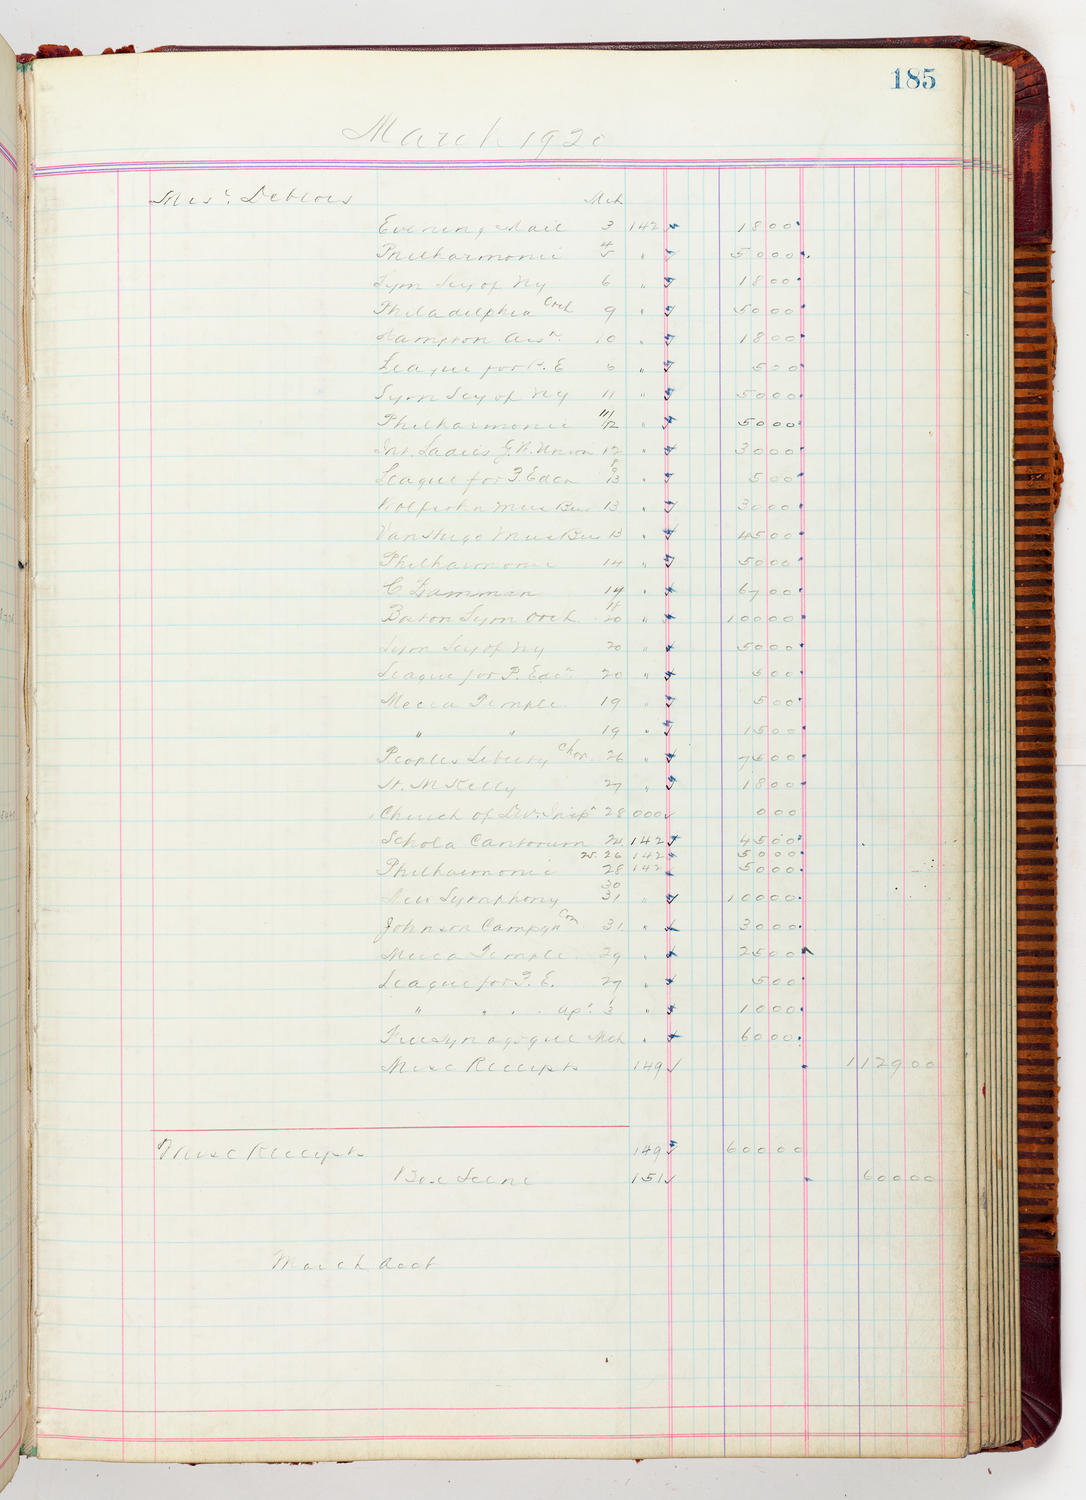 185
March 1920
Misc. Debtors Mch
Evening Mail 3 142 1800
Philharmonic 4 5 " 5000
Sym Scy of Ny 6 " 1800
Philadelphia Orch 9 " 5000
Hampton Assn. 10 " 1800
League for P. E 6 " 500
Sym Scy of Ny 11 " 5000
Philharmonic 11/12 " 5000
Int. Ladies G. W. Union 12 " 3000
League for P. Edcn 8 9 13 " 500
Wolfsohn Mus Bu 13 " 3000
Van Hugo Mus Bu 13 " 4500
Philharmonic 14 " 5000
C Lamman 14 " 6700
Boston Sym Orch. 18 20 " 10000
Sym Scy of Ny 20 " 5000
League for P. Edcn 20 " 500
Mecca Temple 19 " 500
" " 19 " 1500
Peoples Liberty Chor. 26 " 7500
H. M Kelly 27 " 1800
Church of Div. 28 000 000
Schola Cantorum 24 142 4500
25. 26 142 5000
Philharmonic 28 142 5000
30
New Symphony 31 " 10000
Johnson Campgn Com 31 " 3000
Mecca Temple 29 " 2500
League for P. E. 27 " 500
" " " Apl. 3 " 1000
Free Synagogue Mch " 6000
Misc Receipts 149 112900
Misc Receipts 149 60000
Box Scene 151 60000
March Acct